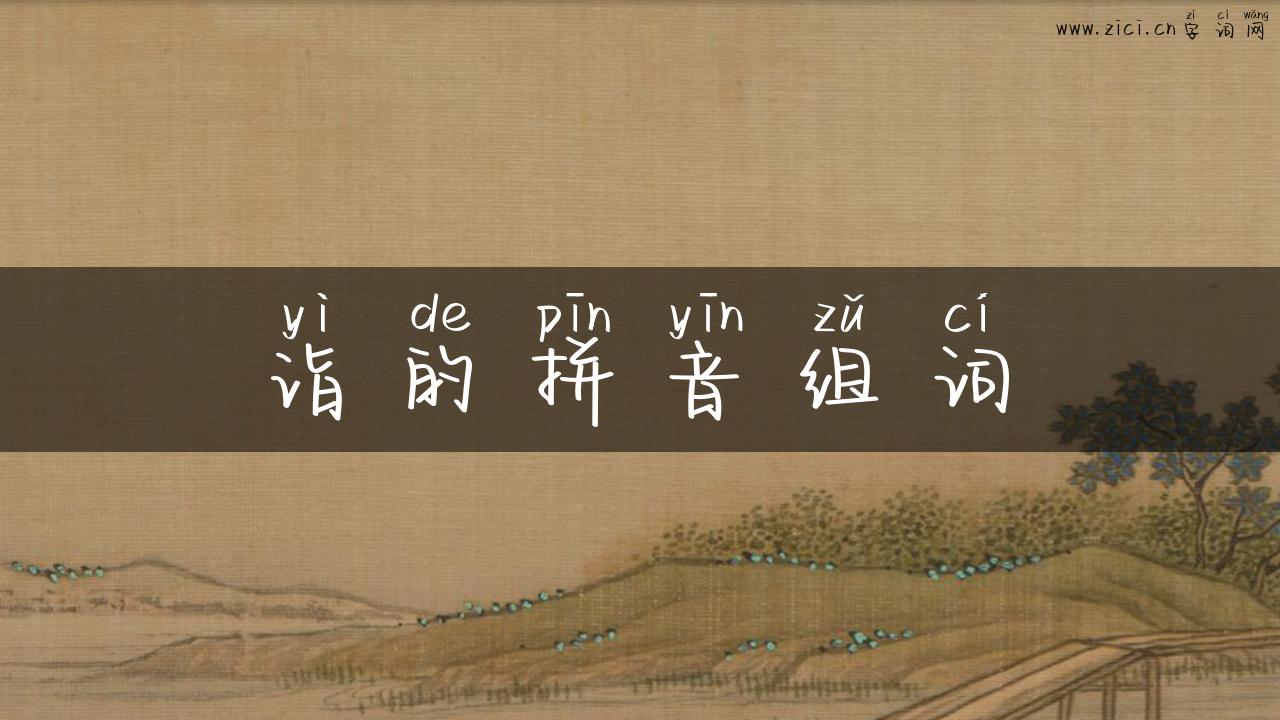 zì cí wǎng
www.zici.cn字词网
yì de pīn yīn zǔ cí
诣的拼音组词